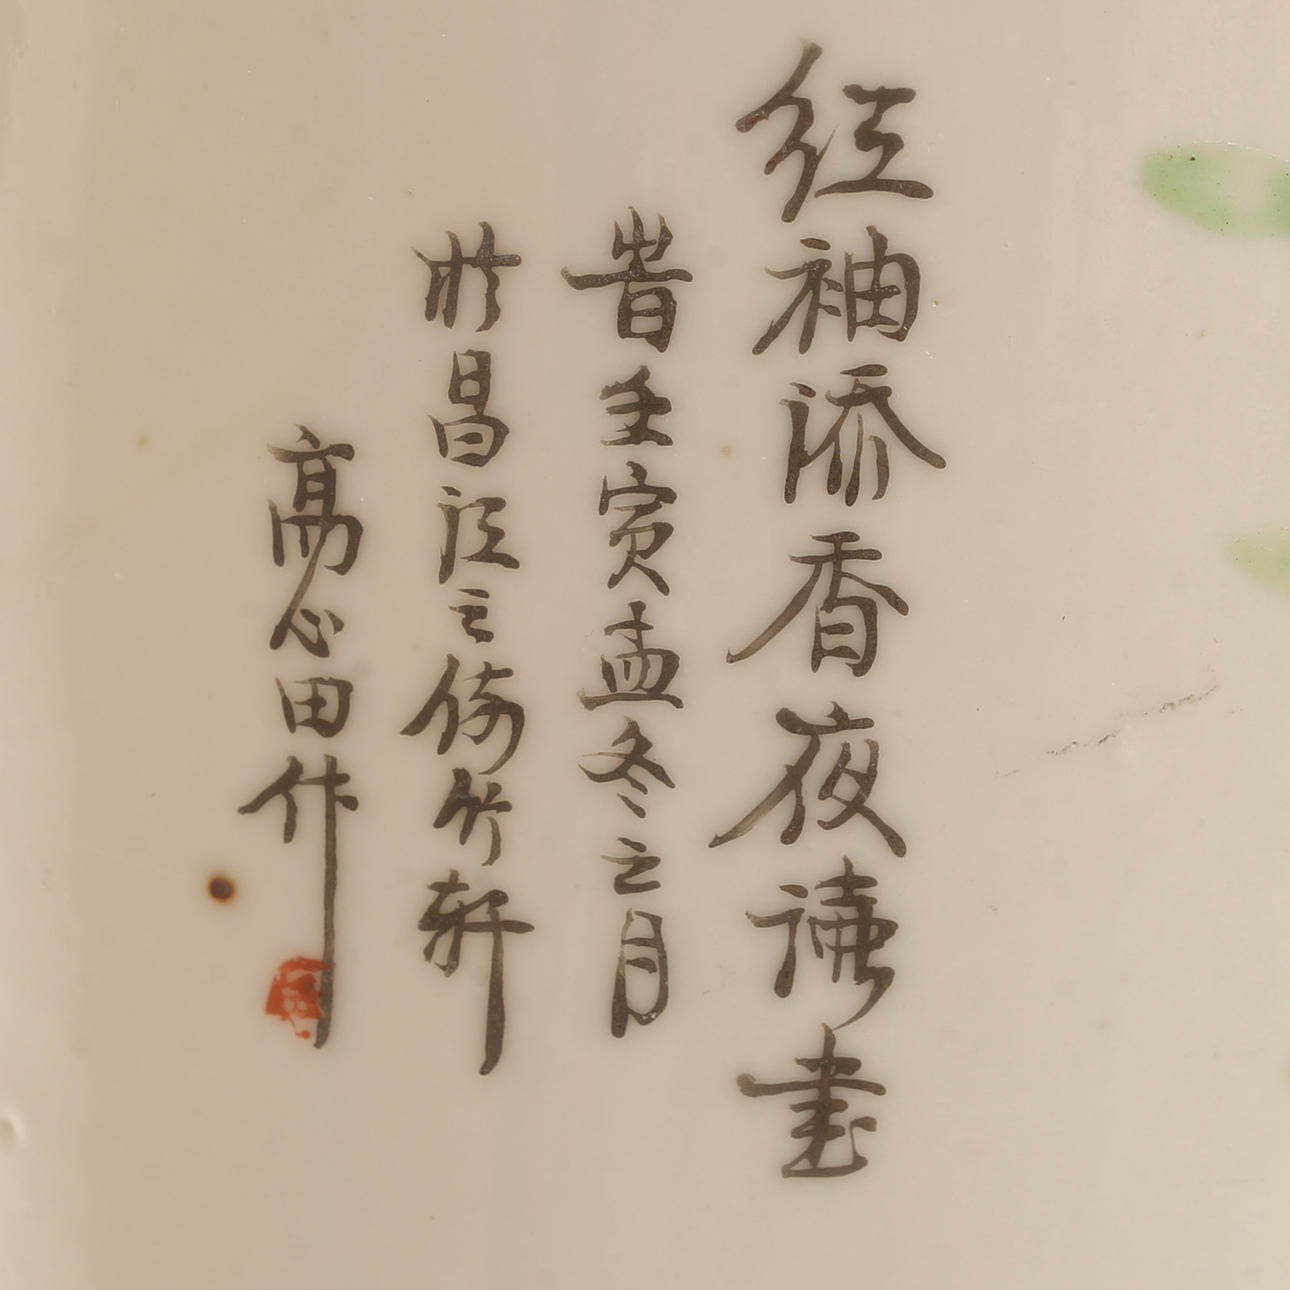 红袖添香夜读书
旹壬寅孟冬之月
於昌江之倚竹轩
高心田作